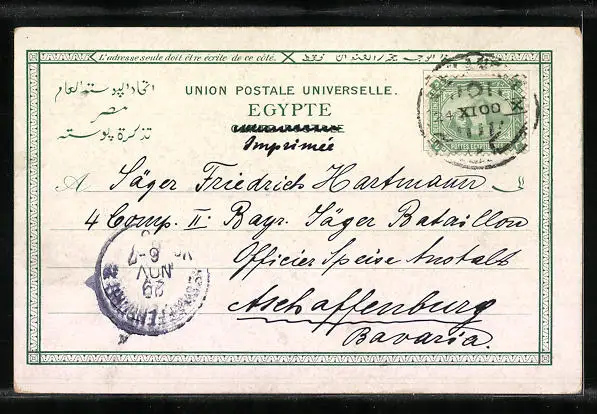 L'adresse seule doit être écrite de ce côté.
اتحاد البوسته العام
مصر
تذكرة بوسته
UNION POSTALE UNIVERSELLE.
EGYPTE
Imprimée
24 XI 00
POSTES EGYPTIENNES
A Jäger Friedrich Hartmann
4 Comp. II. Bayr. Jäger Bataillon
Officier Speise Anstalt
Aschaffenburg
Bavaria.
ASCHAFFENBURG 2
29
NOV
6-7